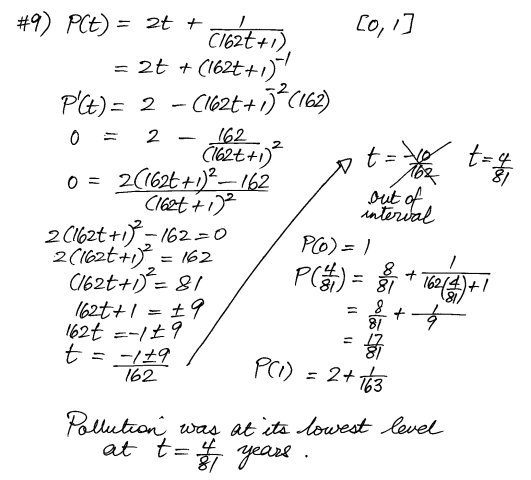 #9) P(t) = 2t + 1/(162t+1) [0, 1]
= 2t + (162t+1)^-1
P'(t) = 2 - (162t+1)^-2 (162)
0 = 2 - 162/(162t+1)^2
0 = (2(162t+1)^2 - 162)/(162t+1)^2
2(162t+1)^2 - 162 = 0
2(162t+1)^2 = 162
(162t+1)^2 = 81
162t+1 = ±9
162t = -1 ± 9
t = (-1±9)/162
t = -10/162 t = 4/81
out of
interval
P(0) = 1
P(4/81) = 8/81 + 1/(162(4/81)+1)
= 8/81 + 1/9
= 17/81
P(1) = 2 + 1/163
Pollution was at its lowest level
at t = 4/81 years.